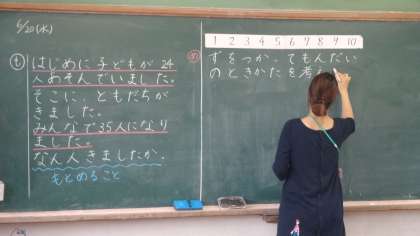 6/20(水)
も
はじめに 子どもが 24
人あそんでいました。
そこに、ともだちが
きました。
みんなで35人になり
ました。
なん人きましたか。
もとめること
1 2 3 4 5 6 7 8 9 10
め
ずをつかってもんだい
のときかたを考